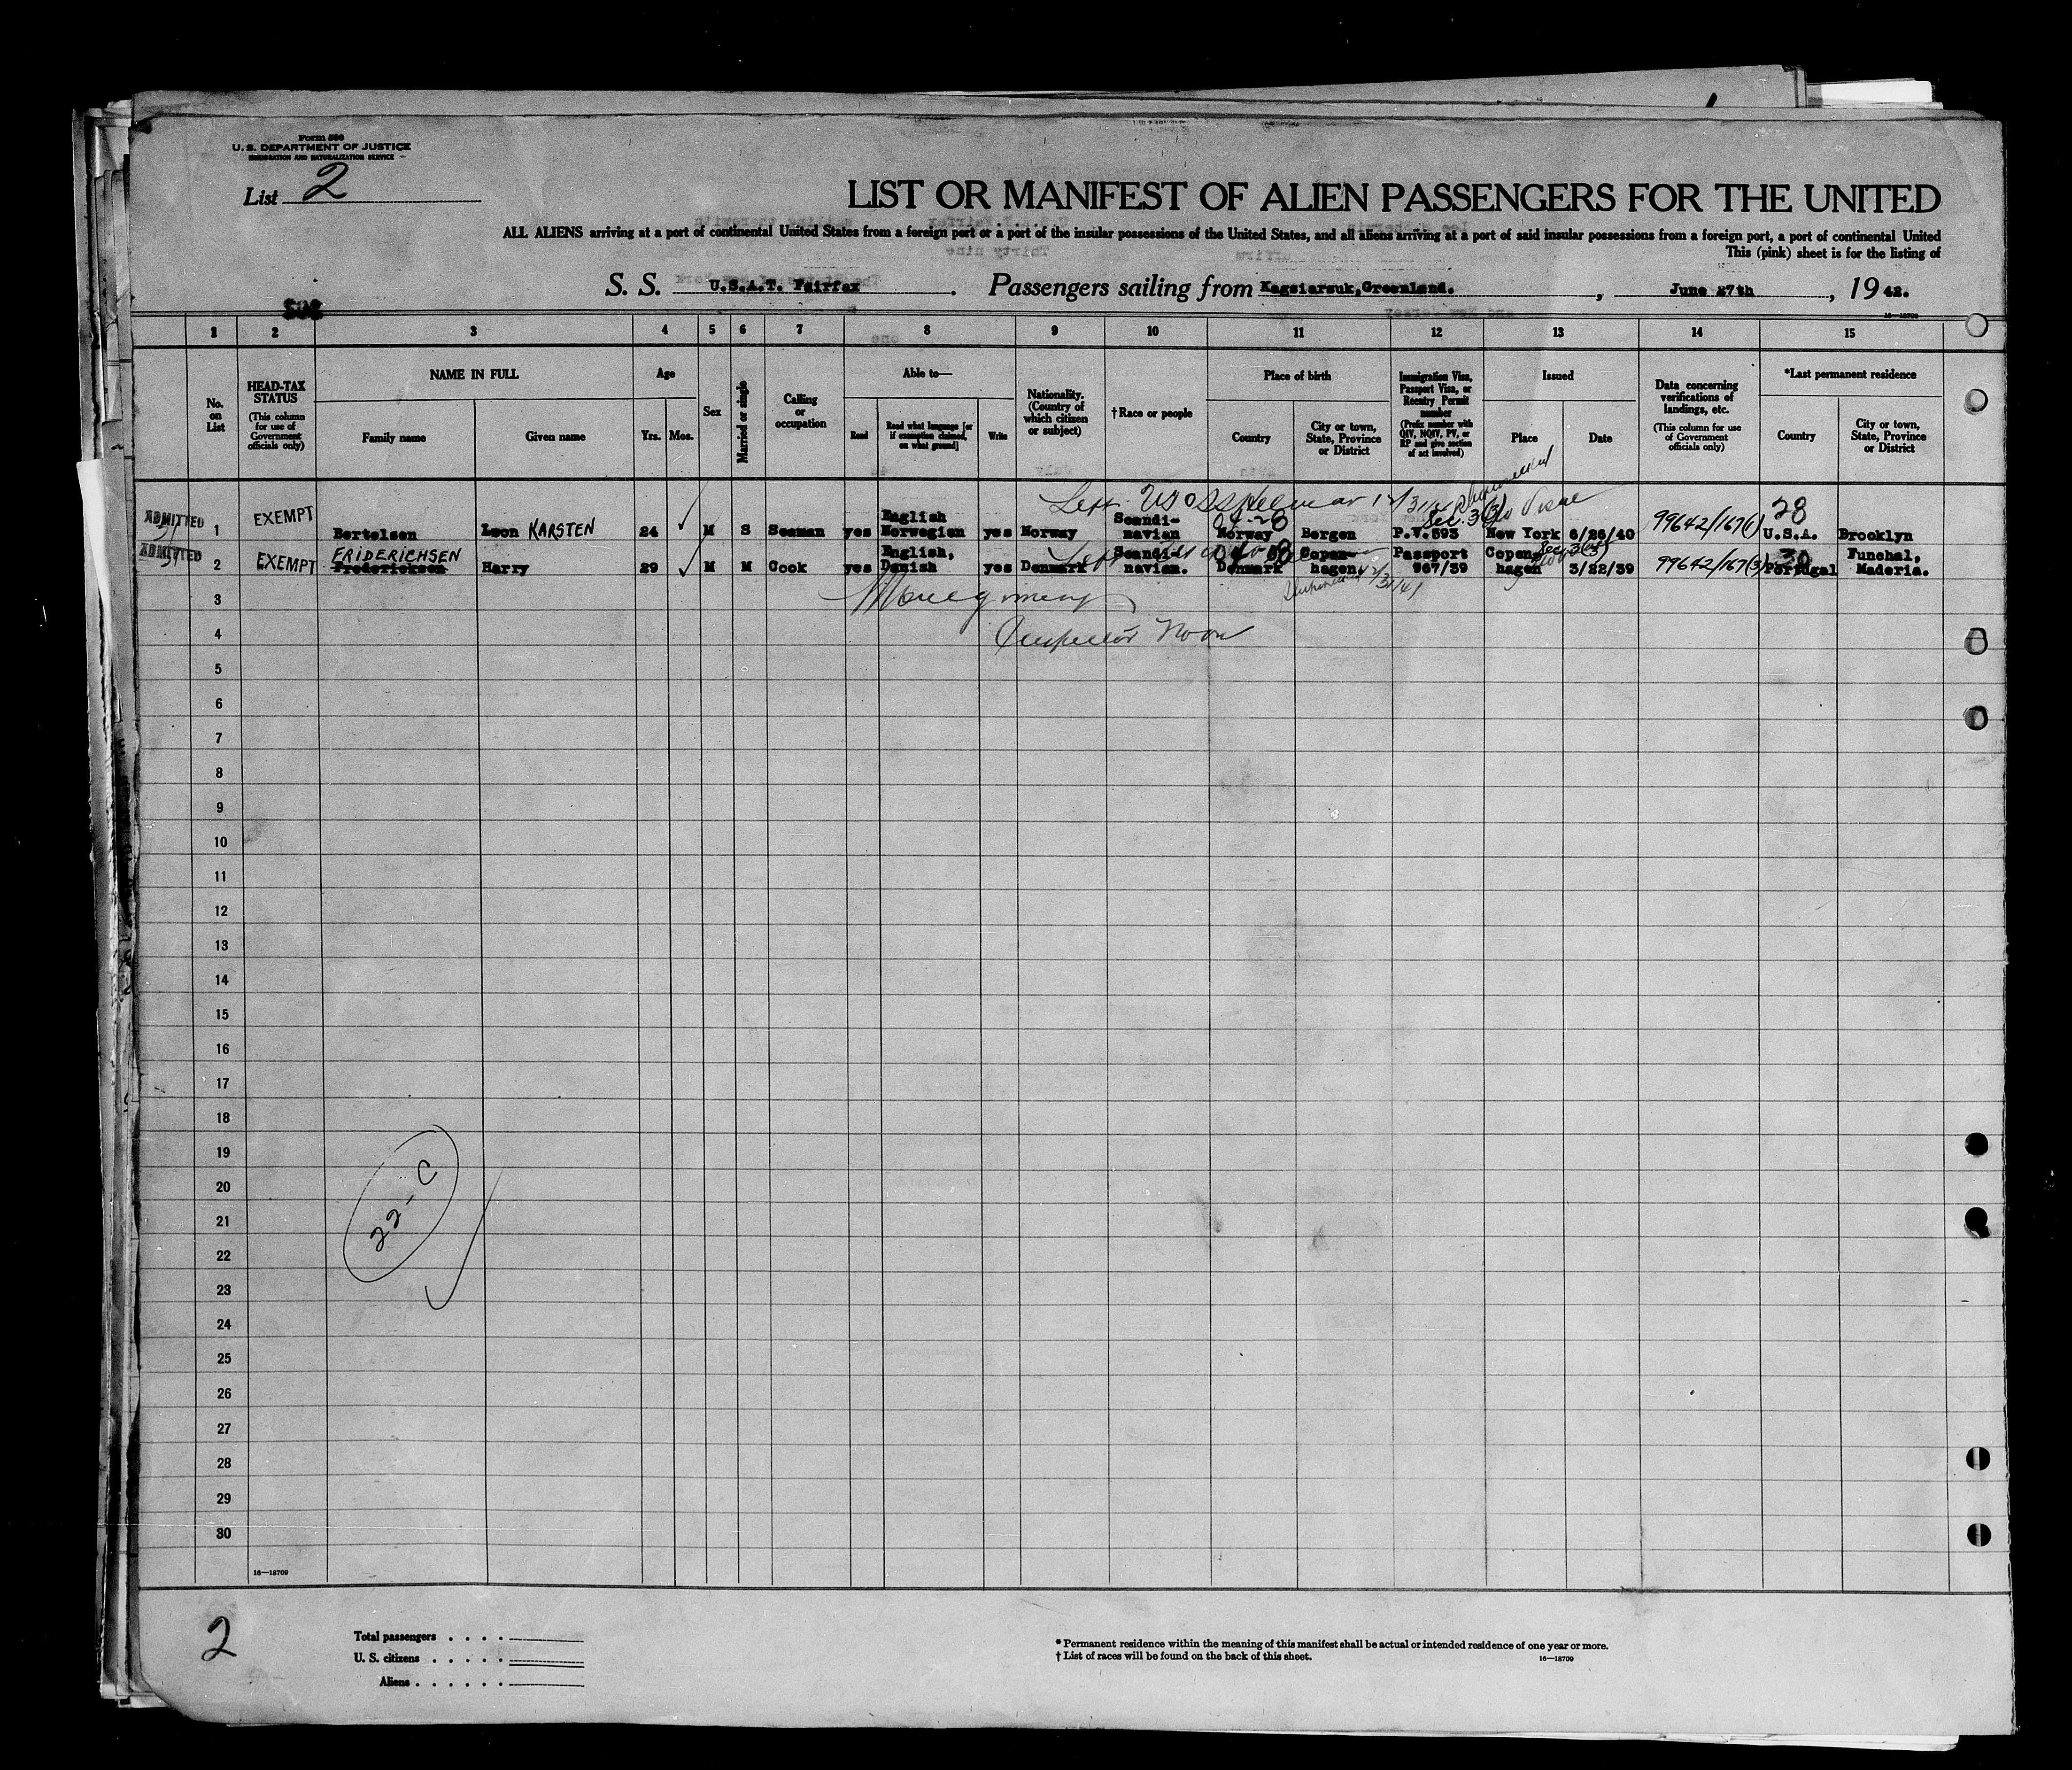 Form 500
U. S. DEPARTMENT OF JUSTICE
IMMIGRATION AND NATURALIZATION SERVICE
List 2
LIST OR MANIFEST OF ALIEN PASSENGERS FOR THE UNITED
ALL ALIENS arriving at a port of continental United States from a foreign port or a port of the insular possessions of the United States, and all aliens arriving at a port of said insular possessions from a foreign port, a port of continental United
This (pink) sheet is for the listing of
S. S. U.S.A.T. Fairfax. Passengers sailing from Kagsiarsuk,Greenland., June 27th, 1942.
16—18709
1 2 3 4 5 6 7 8 9 10 11 12 13 14 15
No. on List
HEAD-TAX STATUS (This column for use of Government officials only)
NAME IN FULL
Family name
Given name
Age
Yrs. Mos.
Sex
Married or single
Calling or occupation
Able to—
Read
Read what language [or if exemption claimed, on what ground]
Write
Nationality. (Country of which citizen or subject)
†Race or people
Place of birth
Country
City or town, State, Province or District
Immigration Visa, Passport Visa, or Reentry Permit number (Prefix number with QIV, NQIV, PV, or RP and give section of act involved)
Issued
Place
Date
Data concerning verifications of landings, etc. (This column for use of Government officials only)
*Last permanent residence
Country
City or town, State, Province or District
ADMITTED 1 EXEMPT Bertelsen Leon KARSTEN 24 M S Seaman yes English Norwegian yes Norway Scandinavian Norway Bergen P.V.593 Sec. 3(3) New York 6/26/40 99642/167(1) 28 U.S.A. Brooklyn
ADMITTED 2 EXEMPT FRIDERICHSEN Fredericksen Harry 29 M M Cook yes English, Danish yes Denmark Scandi-navian. Denmark Copen-hagen, Passport 967/39 Copenhagen Sec 3(3) 3/22/39 99642/167(3) 30 Portugal Funchal, Maderia.
3
Montgomery
4
Inspector Noon
5
6
7
8
9
10
11
12
13
14
15
16
17
18
19
20
21
22
23
24
25
26
27
28
29
30
22-C
16—18709
2
Total passengers
U. S. citizens
Aliens
* Permanent residence within the meaning of this manifest shall be actual or intended residence of one year or more.
† List of races will be found on the back of this sheet.
16—18709